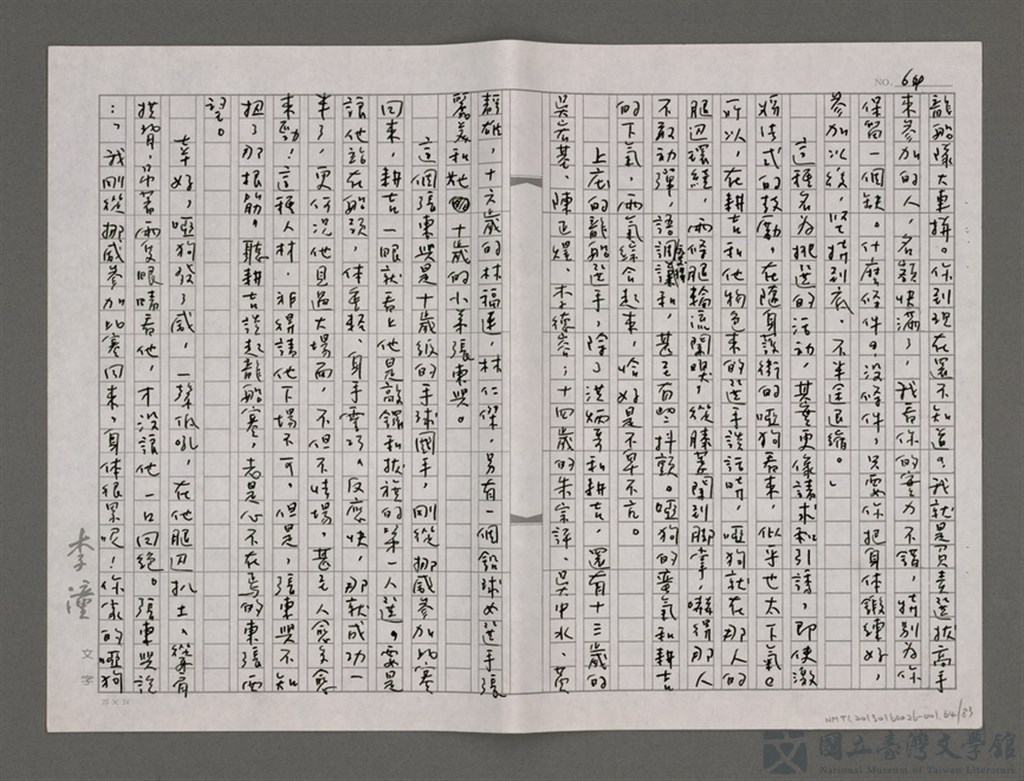 NO. 64
龍船隊大車拼。你到現在還不知道？我就是負責選拔高手
來參加的人，名額快滿了，我看你的實力不錯，特別為你
保留一個缺。什麼條件？沒條件，只要你把身体鍛練好，
參加以後，堅持到底，不半途退縮。」
這種名為挑選的活動，其實更像請求和引誘，即使激
將法式的鼓勵，在隨身護衛的啞狗看來，似乎也太下氣。
所以，在耕吉和他物色來的選手談話時，啞狗就在那人的
腿边環繞，兩條腿輪流聞嗅，從膝蓋聞到腳掌，嚇得那人
不敢動彈，語調緩和，甚至有些抖顫。啞狗的蠻氣和耕吉
的下氣，兩氣綜合起來，恰好是不卑不亢。
上庄的龍船選手，除了洪炳芳和耕吉，還有十三歲的
吳宏基、陳正煌、李德容；十四歲的朱宗評、吳中水、黃
靜雄，十六歲的林福連，林仁傑，另有一個鉛球女選手張
馨美和她十歲的小弟張東興。
這個張東興是十歲級的手球國手，剛從挪威參加比賽
回來，耕吉一眼就看上他是敲鑼和拔旗的第一人選。要是
讓他站在船頭，体重輕、身手靈巧。反應快，那就成功一
半了，更何況他見過大場面，不但不怯場，甚至人愈多愈
來勁！這種人材，非得請他下場不可，但是，張東興不知
扭了那根筋，聽耕吉談起龍船賽，老是心不在焉的東張西
望。
幸好，啞狗發了威，一聲低吼，在他腿边扒土，聳肩
拱背，吊著兩隻眼睛看他，才沒讓他一口回絕。張東興說
：「我剛從挪威參加比賽回來，身体很累呢！你家的啞狗
李潼
文字
25 × 24
NMTL20130160026-001.64/83
國立臺灣文學館
National Museum of Taiwan Literature